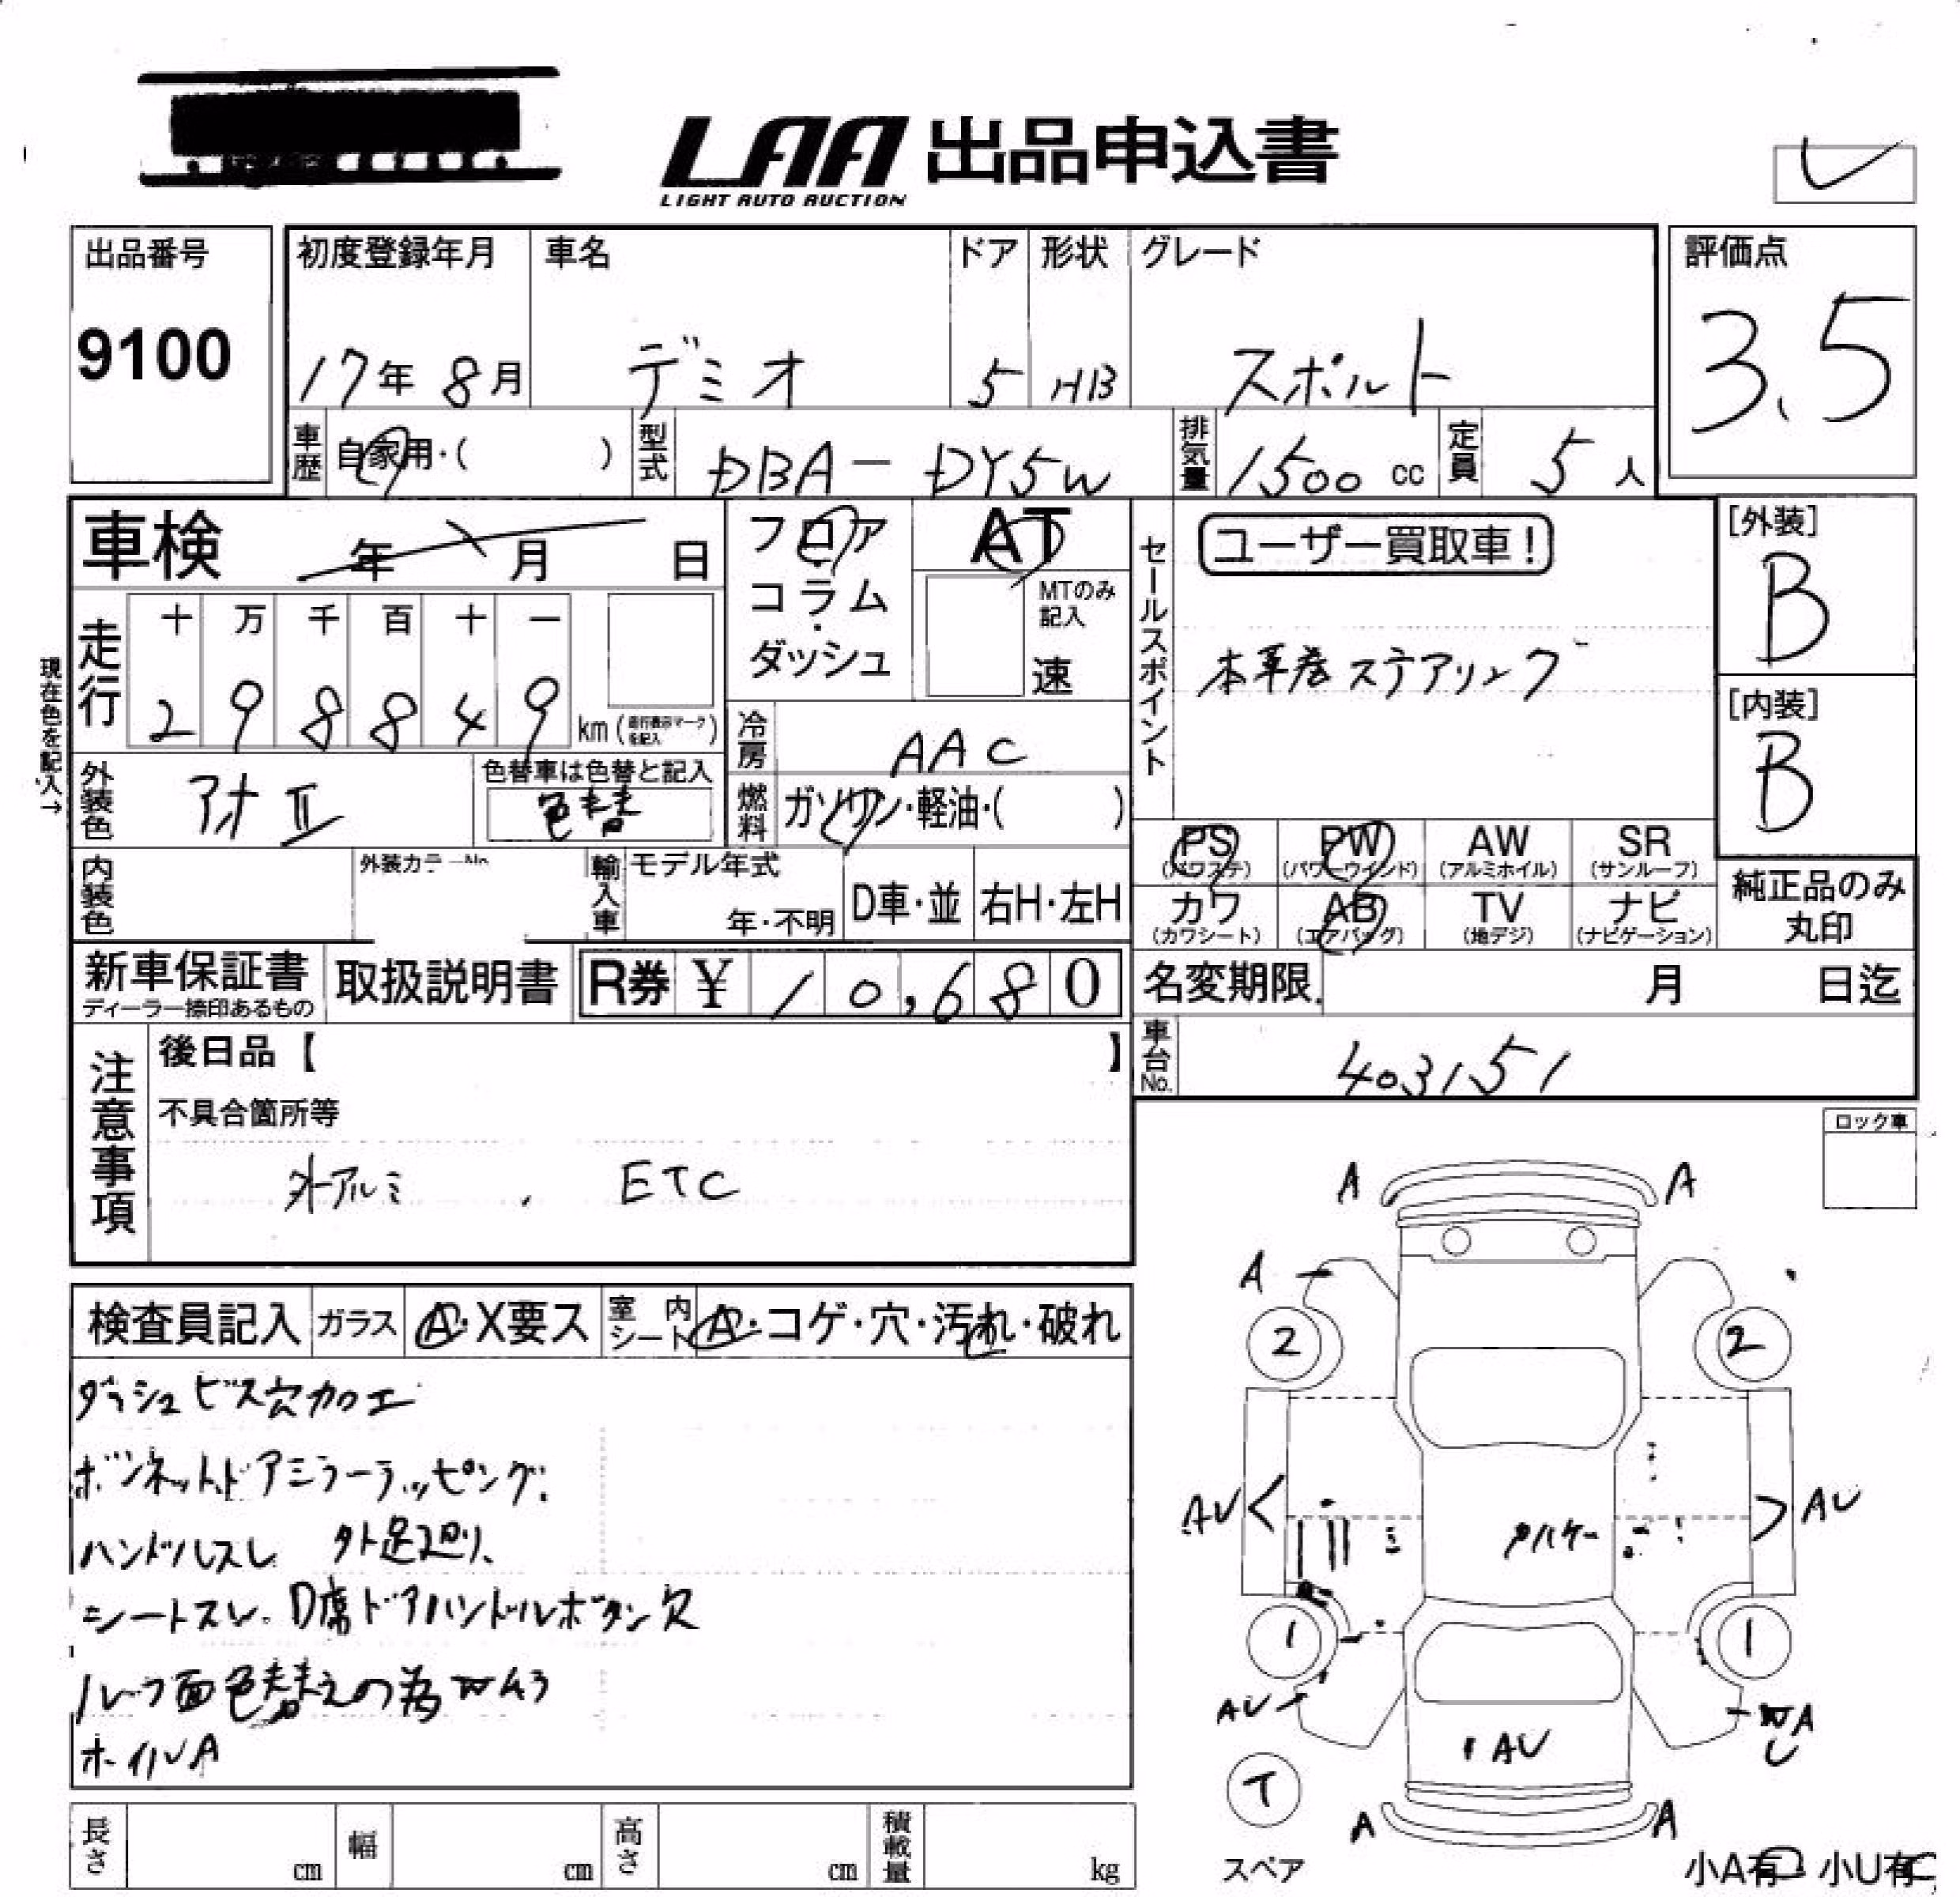 LAA 出品申込書
LIGHT AUTO AUCTION
出品番号
9100
初度登録年月
17年 8月
車名
デミオ
ドア
5
形状
HB
グレード
スポルト
評価点
3.5
車歴 自家用・( )
型式 DBA-DY5W
排気量 1500 cc
定員 5 人
車検 年 月 日
フロア・コラム・ダッシュ
AT
MTのみ記入
速
セールスポイント
ユーザー買取車!
本革巻ステアリング
[外装]
B
[内装]
B
現在色を記入→
走行
十 万 千 百 十 一
2 9 8 8 4 9 km (走行表示マークを記入)
冷房 AAC
外装色 アオⅡ
色替車は色替と記入
色替
燃料 ガソリン・軽油・( )
PS (パワステ)
PW (パワーウインド)
AW (アルミホイル)
SR (サンルーフ)
カワ (カワシート)
AB (エアバッグ)
TV (地デジ)
ナビ (ナビゲーション)
純正品のみ丸印
内装色
外装カラーNo.
輸入車
モデル年式
年・不明
D車・並
右H・左H
新車保証書
ディーラー捺印あるもの
取扱説明書
R券 ¥ 10,680
名変期限 月 日迄
車台No. 403151
注意事項
後日品【 】
不具合箇所等
外アルミ . ETC
ロック車
検査員記入
ガラス A・X要ス
室内シート A・コゲ・穴・汚れ・破れ
ダッシュビス穴加工
ボンネット、ドアミラーラッピング.
ハンドルスレ 外足廻り、
シートスレ. D席ドアハンドルボタン欠
ルーフ面色替えの為W43
ホイルA
A A
A
2 2
AU AU
1 1
AU
WA
U
AU
T
スペア
A A
小A有 小U有
長さ cm
幅 cm
高さ cm
積載量 kg